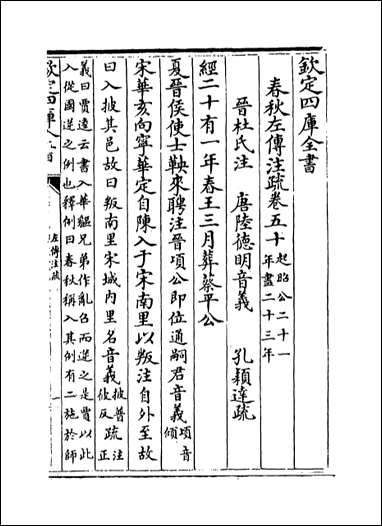 欽定四庫全書
春秋左傳注疏卷五十起昭公二十一年盡二十三年
晉杜氏注　唐陸德明音義　孔穎達疏
經二十有一年春王三月葬蔡平公
夏晉侯使士鞅來聘注晉頃公即位通嗣君音義頃音傾
宋華亥向寧華定自陳入于宋南里以叛注自外至故
曰入披其邑故曰叛南里宋城内里名音義披普彼反疏注正
義曰賈逵云書入華貙兄弟作亂召而逆之是賈以此
入從國逆之例也釋例曰春秋稱入其例有二施於師
欽定四庫全書
左傳注疏